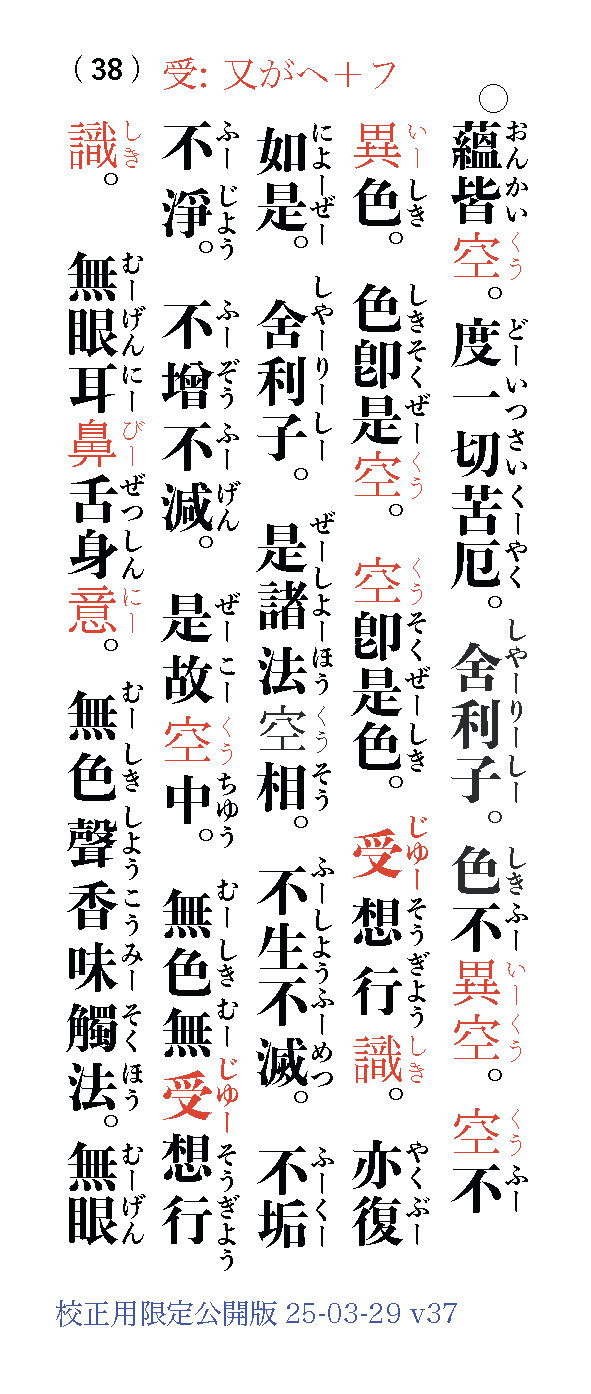 (38) 受: 又がへ+フ
○
蘊皆空。度一切苦厄。舍利子。色不異空。空不
おんかいくう どーいつさいくーやく しやーりーしー しきふーいーくう くうふー
異色。色卽是空。空卽是色。受想行識。亦復
いーしき しきそくぜーくう くうそくぜーしき じゆーそうぎようしき やくぶー
如是。舍利子。是諸法空相。不生不滅。不垢
によーぜー しやーりーしー ぜーしよーほうくうそう ふーしようふーめつ ふーくー
不淨。不增不減。是故空中。無色無受想行
ふーじよう ふーぞうふーげん ぜーこーくうちゆう むーしきむーじゆーそうぎよう
識。無眼耳鼻舌身意。無色聲香味觸法。無眼
しき むーげんにーびーぜつしんにー むーしきしようこうみーそくほう むーげん
校正用限定公開版 25-03-29 v37